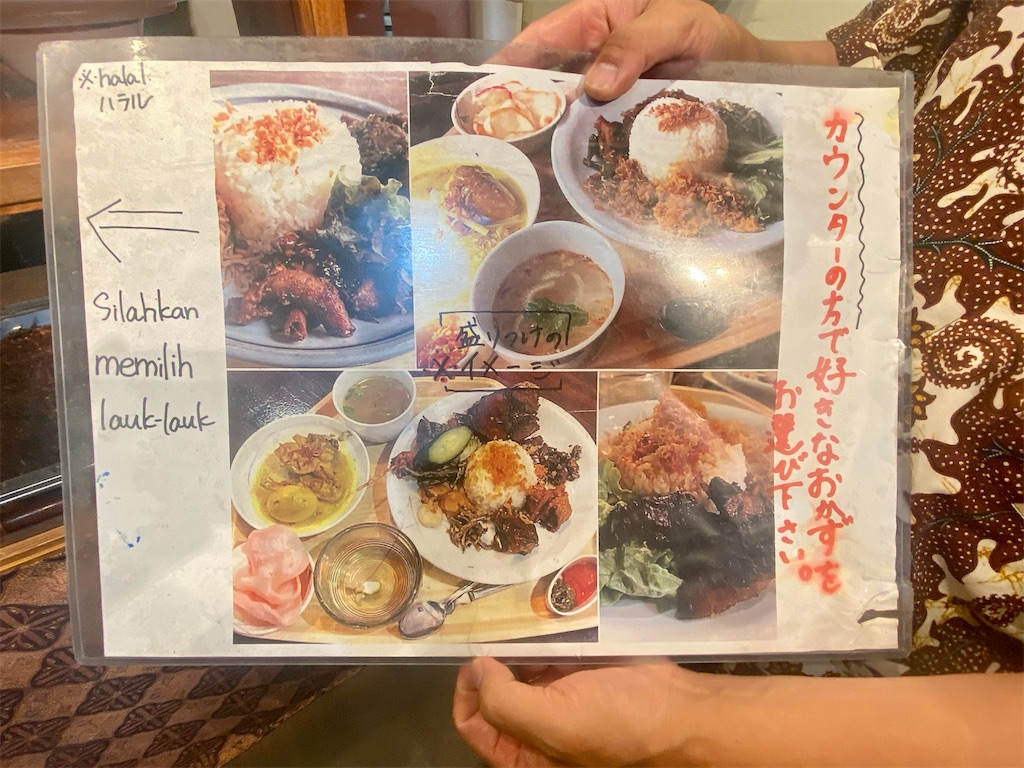 ※halal
ハラル
Silahkan
memilih
lauk-lauk
盛りつけの
※イメージ
カウンターの方で好きなおかずを
お選び下さい。